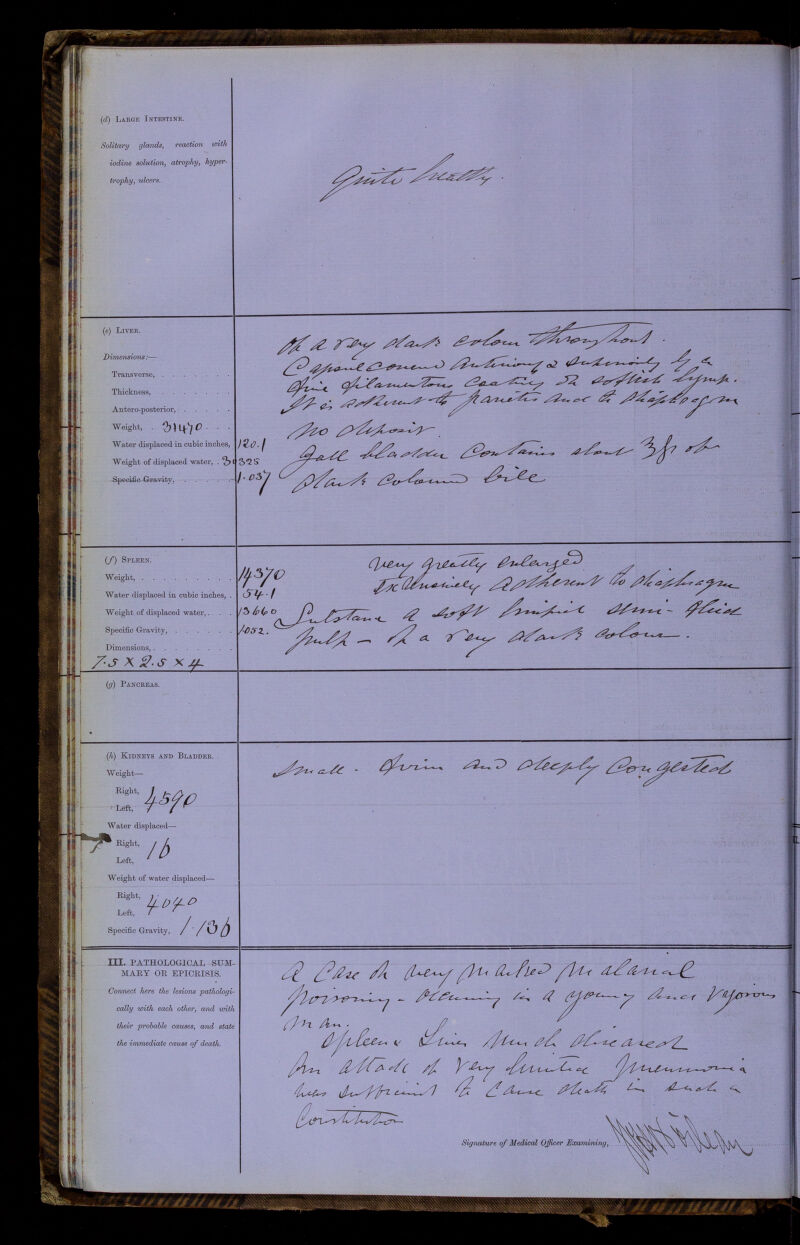 (d) LARGE INTESTINE.
Solitary glands, reaction with
iodine solution, atrophy, hyper-
trophy, ulcers.
Quite healthy.
(e) LIVER.
Dimensions:—
Transverse,
Thickness,
Antero-posterior,
Weight, 31470
Water displaced in cubic inches, 120.1
Weight of displaced water, 30325
Specific Gravity, 1.037
Of a very dark colour throughout.
Capsule covered anteriorly & superiorly by a
fine filamentous coating of softish lymp.
It is adherent to parietes and to diaphragm
No deposit.
Gall bladder contains about ℥ of
dark coloured bile
(f) SPLEEN.
Weight, 14370
Water displaced in cubic inches, 54.1
Weight of displaced water, 13660
Specific Gravity, 1052.
Dimensions,
7.5 X 2.5 X 4
Very greatly enlarged
Extensively adherent to diaphragm
Substance a soft semi-fluid
pulp - of a very dark colour.
(g) PANCREAS.
(h) KIDNEYS AND BLADDER.
Weight—
Right,
Left, 4590
Water displaced—
Right,
Left, 16
Weight of water displaced—
Right,
Left, 4040
Specific Gravity, 1.136
Small - firm and deeply congested
III. PATHOLOGICAL SUM-
MARY OR EPICRISIS.
Connect here the lesions pathologi-
cally with each other, and with
their probable causes, and state
the immediate cause of death.
A case of very marked malarial
poisoning - occurring in a young and vigorous
man.
Spleen & Liver much diseased
An attack of very limited pneumonia
was sufficient to cause death in such a
Constitution
Signature of Medical Officer Examining,